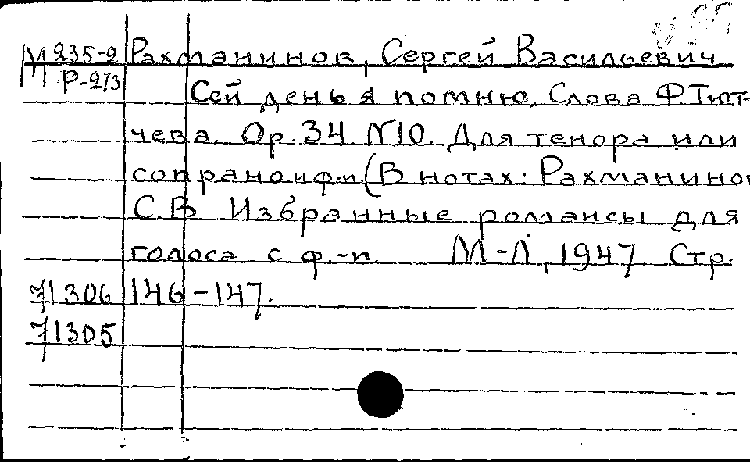 М 235-2 Рахманинов, Сергей Васильевич
Р-213 Сей день я помню. Слова Ф. Тют-
чева. Ор. 34 N10. Для тенора или
сопрано и ф-п (В нотах: Рахманинов
С.В. Избранные романсы для
голоса с ф.-п. М-Л, 1947 Стр.
71306 146-147.
71305